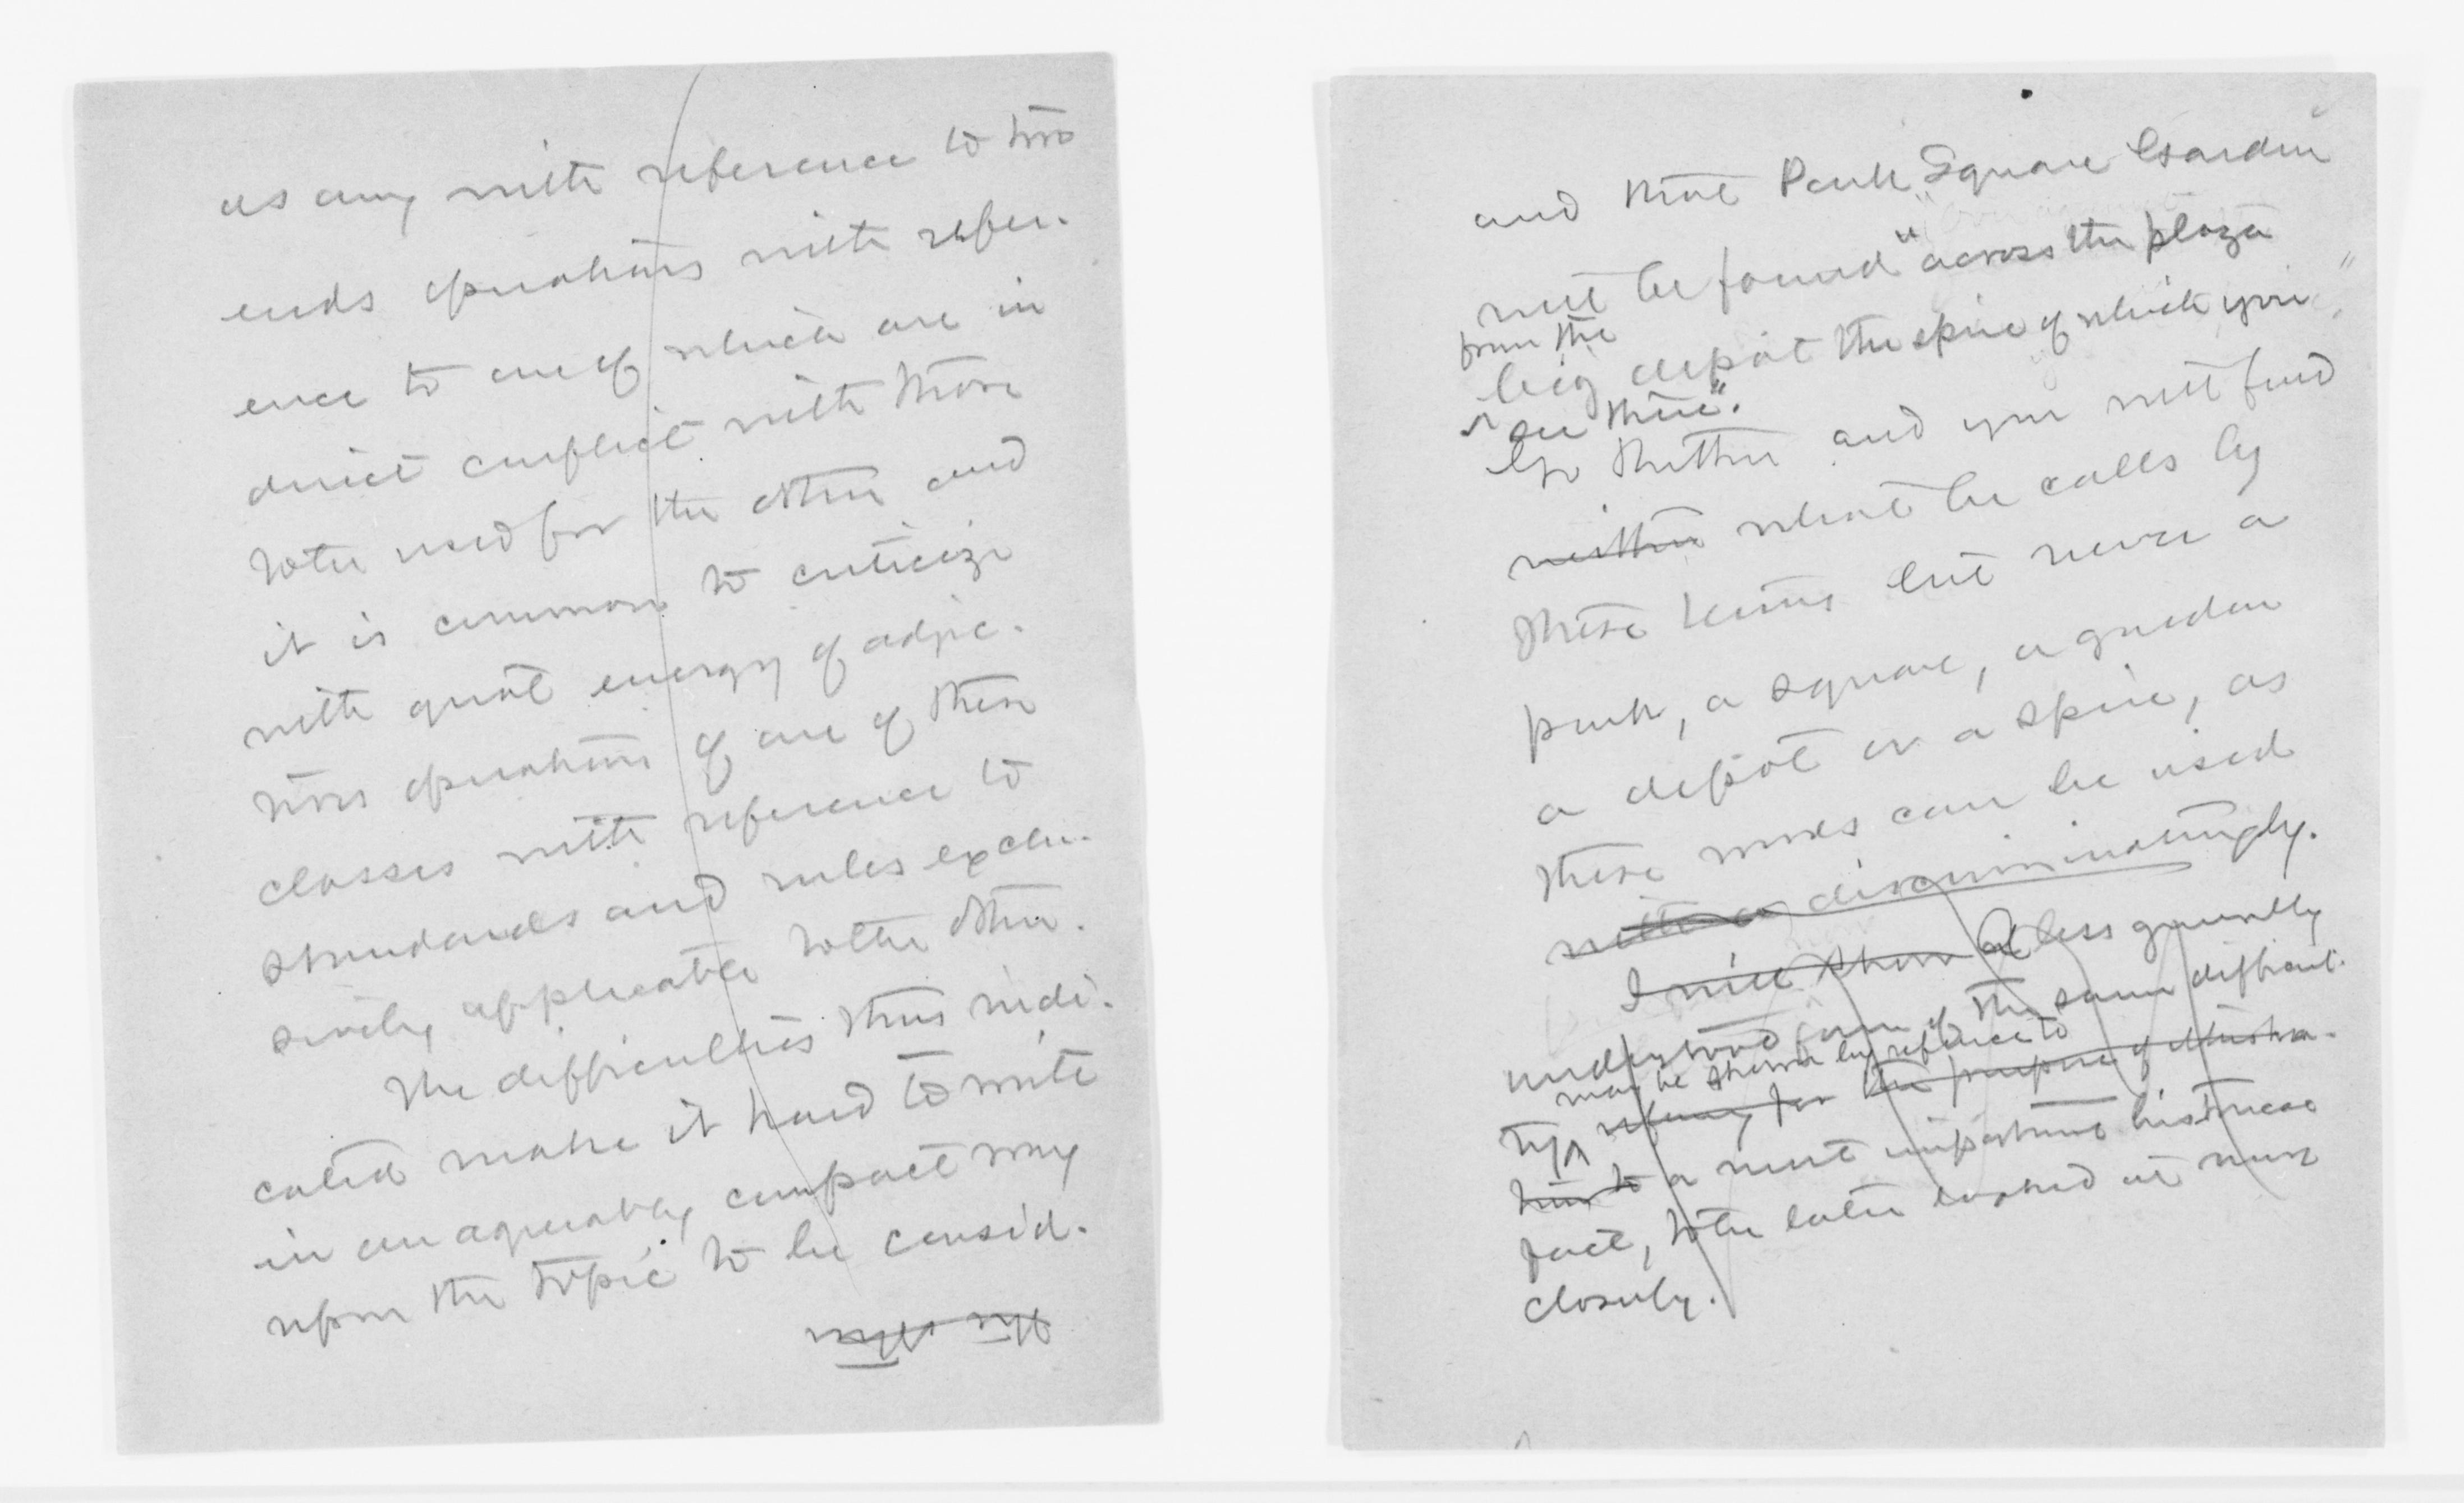 as any with reference to two
ends operations with refer-
ence to one of which are in
direct conflict with those
to be used for the other and
it is common to criticize
with great energy of adjec-
tives operations of one of these
classes with reference to
standards and rules exclu-
sively applicable to the other.
The difficulties thus indi-
cated make it hard to write
in an agreeably compact way
upon the topic to be consid-
and that Park Square Garden
will be found "across the plaza
from the
big depot the spire of which you
see there".
Go thither and you will find
neither what he calls by
these terms but never a
park, a square, a garden
a depot or a spire, as
these words can be used
with discriminatingly.
I will show A less generally
understood form of the same difficul-
may be shown by reference to
ty refering for the purpose of illustra-
tion to a most important historical
fact, to be later looked at more
closely.